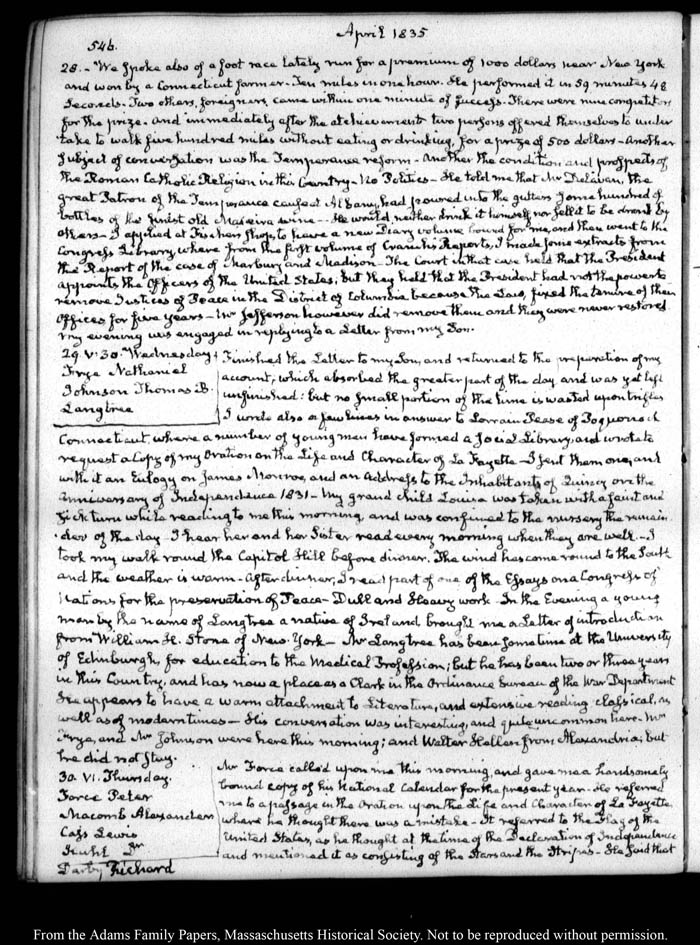 546.
April 1835
28.- We spoke also of a foot race lately run for a premium of 1000 dollars near New York
and won by a Connecticut farmer. Ten miles in one hour. He performed it in 59 minutes 48
Seconds. Two others, foreigners, came within one minute of success. There were nine competitors
for the prize. And immediately after the atchievement two persons offered themselves to under
take to walk five hundred miles without eating or drinking, for a prize of 500 dollars - Another
subject of conversation was the Temperance reform - Another the condition and prospects of
the Roman Catholic Religion in this Country - No Politics - He told me that Mr Delavan, the
great Patron of the Temperance cause at Albany, had poured into the gutters some hundred of
bottles of the finest old Madeira wine - He would neither drink it himself nor sell it to be drank by
others - I applied at Fischer's shop, to have a new Diary volume bound for me, and then went to the
Congress Library, where from the first volume of Cranch's Reports, I made some extracts from
the Report of the case of Marbury and Madison - The Court in that case held that the President
appoints the Officers of the United States, but they held that the President had not the power to
remove Justices of Peace in the District of Columbia because the Law, fixed the tenure of their
Offices for five years - Mr Jefferson however did remove them and they were never restored
My evening was engaged in replying to a Letter from my Son.
29. V:30. Wednesday
Frye Nathaniel
Johnson Thomas B.
Langtree
Finished the Letter to my Son, and returned to the preparation of my
account, which absorbed the greater part of the day and was yet left
unfinished: but no small portion of the time is wasted upon trifles
I wrote also a few lines in answer to Lorrain Pease of Poquonock
Connecticut, where a number of young men have formed a social Library, and wrote to
request a Copy of my Oration on the Life and Character of La Fayette - I sent them one, and
with it an Eulogy on James Monroe, and an Address to the Inhabitants of Quincy on the
Anniversary of Independence 1831 - My grand child Louisa was taken with a faint and
sick turn while reading to me this morning, and was confined to the nursery the remain
-der of the day - I hear her and her Sister read every morning when they are well. - I
took my walk round the Capitol Hill before dinner. The wind has come round to the South
and the weather is warm - After dinner, I read part of one of the Essays on a Congress of
Nations for the preservation of Peace - Dull and Heavy work - In the Evening a young
man by the name of Langtree a native of Ireland brought me a Letter of introduction
from William H. Stone of New York - Mr Langtree has been some time at the University
of Edinburgh, for education to the Medical Profession; but he has been two or three years
in this Country, and has now a place as a Clerk in the Ordinance bureau of the War Department
He appears to have a warm attachment to Literature, and extensive reading classical, as
well as of modern times - His conversation was interesting, and quite uncommon here - Mr
Frye, and Mr Johnson were here this morning; and Walter Hellen from Alexandria; but
he did not stay.
30. VI. Thursday.
Force Peter
Macomb Alexander
Cass Lewis
Darby
Mr Force called upon me this morning, and gave me a handsomely
bound copy of his National Calendar for the present year - He referred
me to a passage in the Oration upon the Life and Character of La Fayette
where he thought there was a mistake - It referred to the Flag of the
United States, as he thought at the time of the Declaration of Independence
and mentioned it as consisting of the Stars and the Stripes - He said that
From the Adams Family Papers, Massachusetts Historical Society. Not to be reproduced without permission.